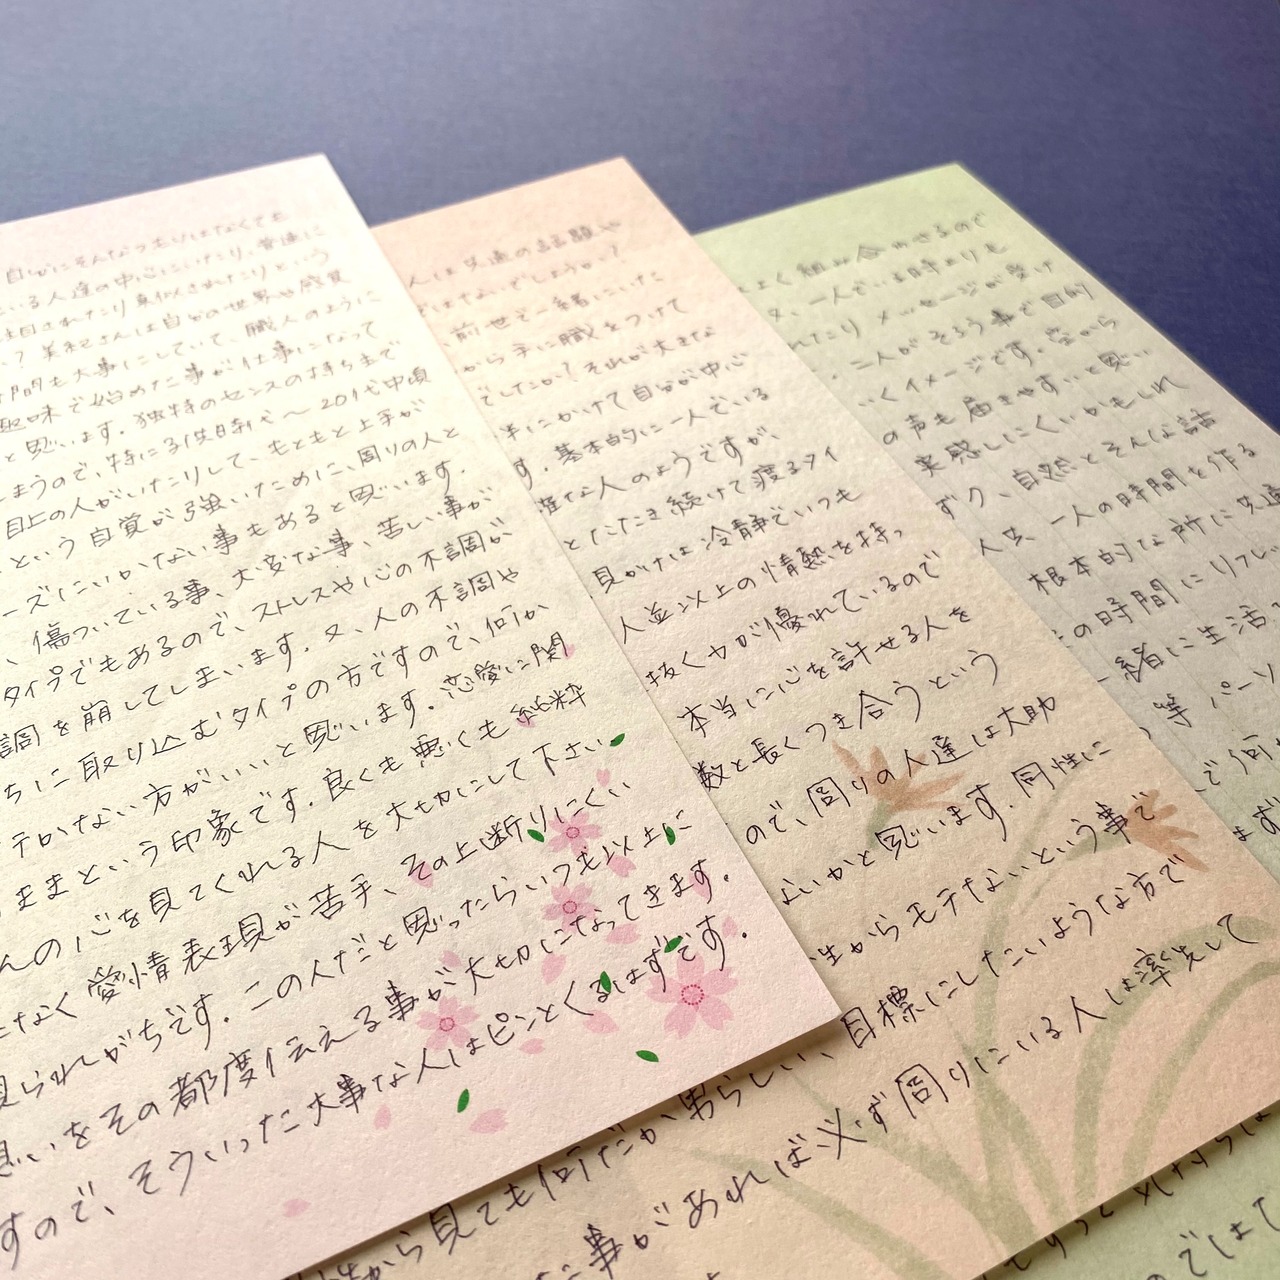 自分にそんなつもりはなくても
いる人達の中心にいたり、普通に
注目されたり真似されたりという
？美和さんは自分の世界や感覚
時間も大事にしていて、職人のように
趣味で始めた事が仕事になって
と思います。独特のセンスの持ち主で
しまうので、特に子供時代〜20代中頃
目上の人がいたりして、もともと上手が
という自覚が強いために、周りの人と
ーズにいかない事もあると思います。
、傷ついている事、大変な事、苦しい事が
タイプでもあるので、ストレスや心の不調が
調を崩してしまいます。又、人の不調や
ちに取り込むタイプの方ですので、何か
行かない方がいいと思います。恋愛に関
ままという印象です。良くも悪くも純粋
んの心を見てくれる人を大切にして下さい
なく愛情表現が苦手、その上断りにくい
見られがちです。この人だと思ったらいつも以上に
思いをその都度伝える事が大切になってきます。
すので、そういった大事な人はピンとくるはずです。
人は共通の話題や
ではないでしょうか？
前世で一緒にいた
から手に職をつけて
でしたか？それが大きな
半にかけて自分が中心
す。基本的に一人でいる
雑な人のようですが、
とたたき続けて渡るタイ
見かけは冷静でいつも
人並以上の情熱を持っ
抜く力が優れているので
本当に心を許せる人を
数と長くつき合うという
ので、周りの人達は大助
よいかと思います。同性に
性からモテないという事で
目標にしたいような方で
から見ても何だか男らしい、
事があれば必ず周りにいる人は率先して
よく組み合わせるので
又、一人でいる時よりも
れたりメッセージが受け
、二人がそろう事で目的
いくイメージです。空から
の声も届きやすいと思い
実感しにくいかもしれ
ずク、自然とそんな話
人共、一人の時間を作る
根本的な所に共通
の時間にリフレッ
一緒に生活
等、パーソ
で何
ます
ではて